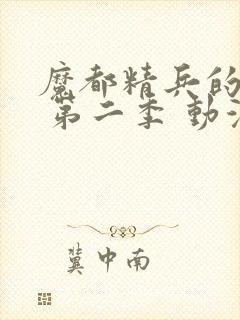 魔都精兵的
第二季 動
冀中南